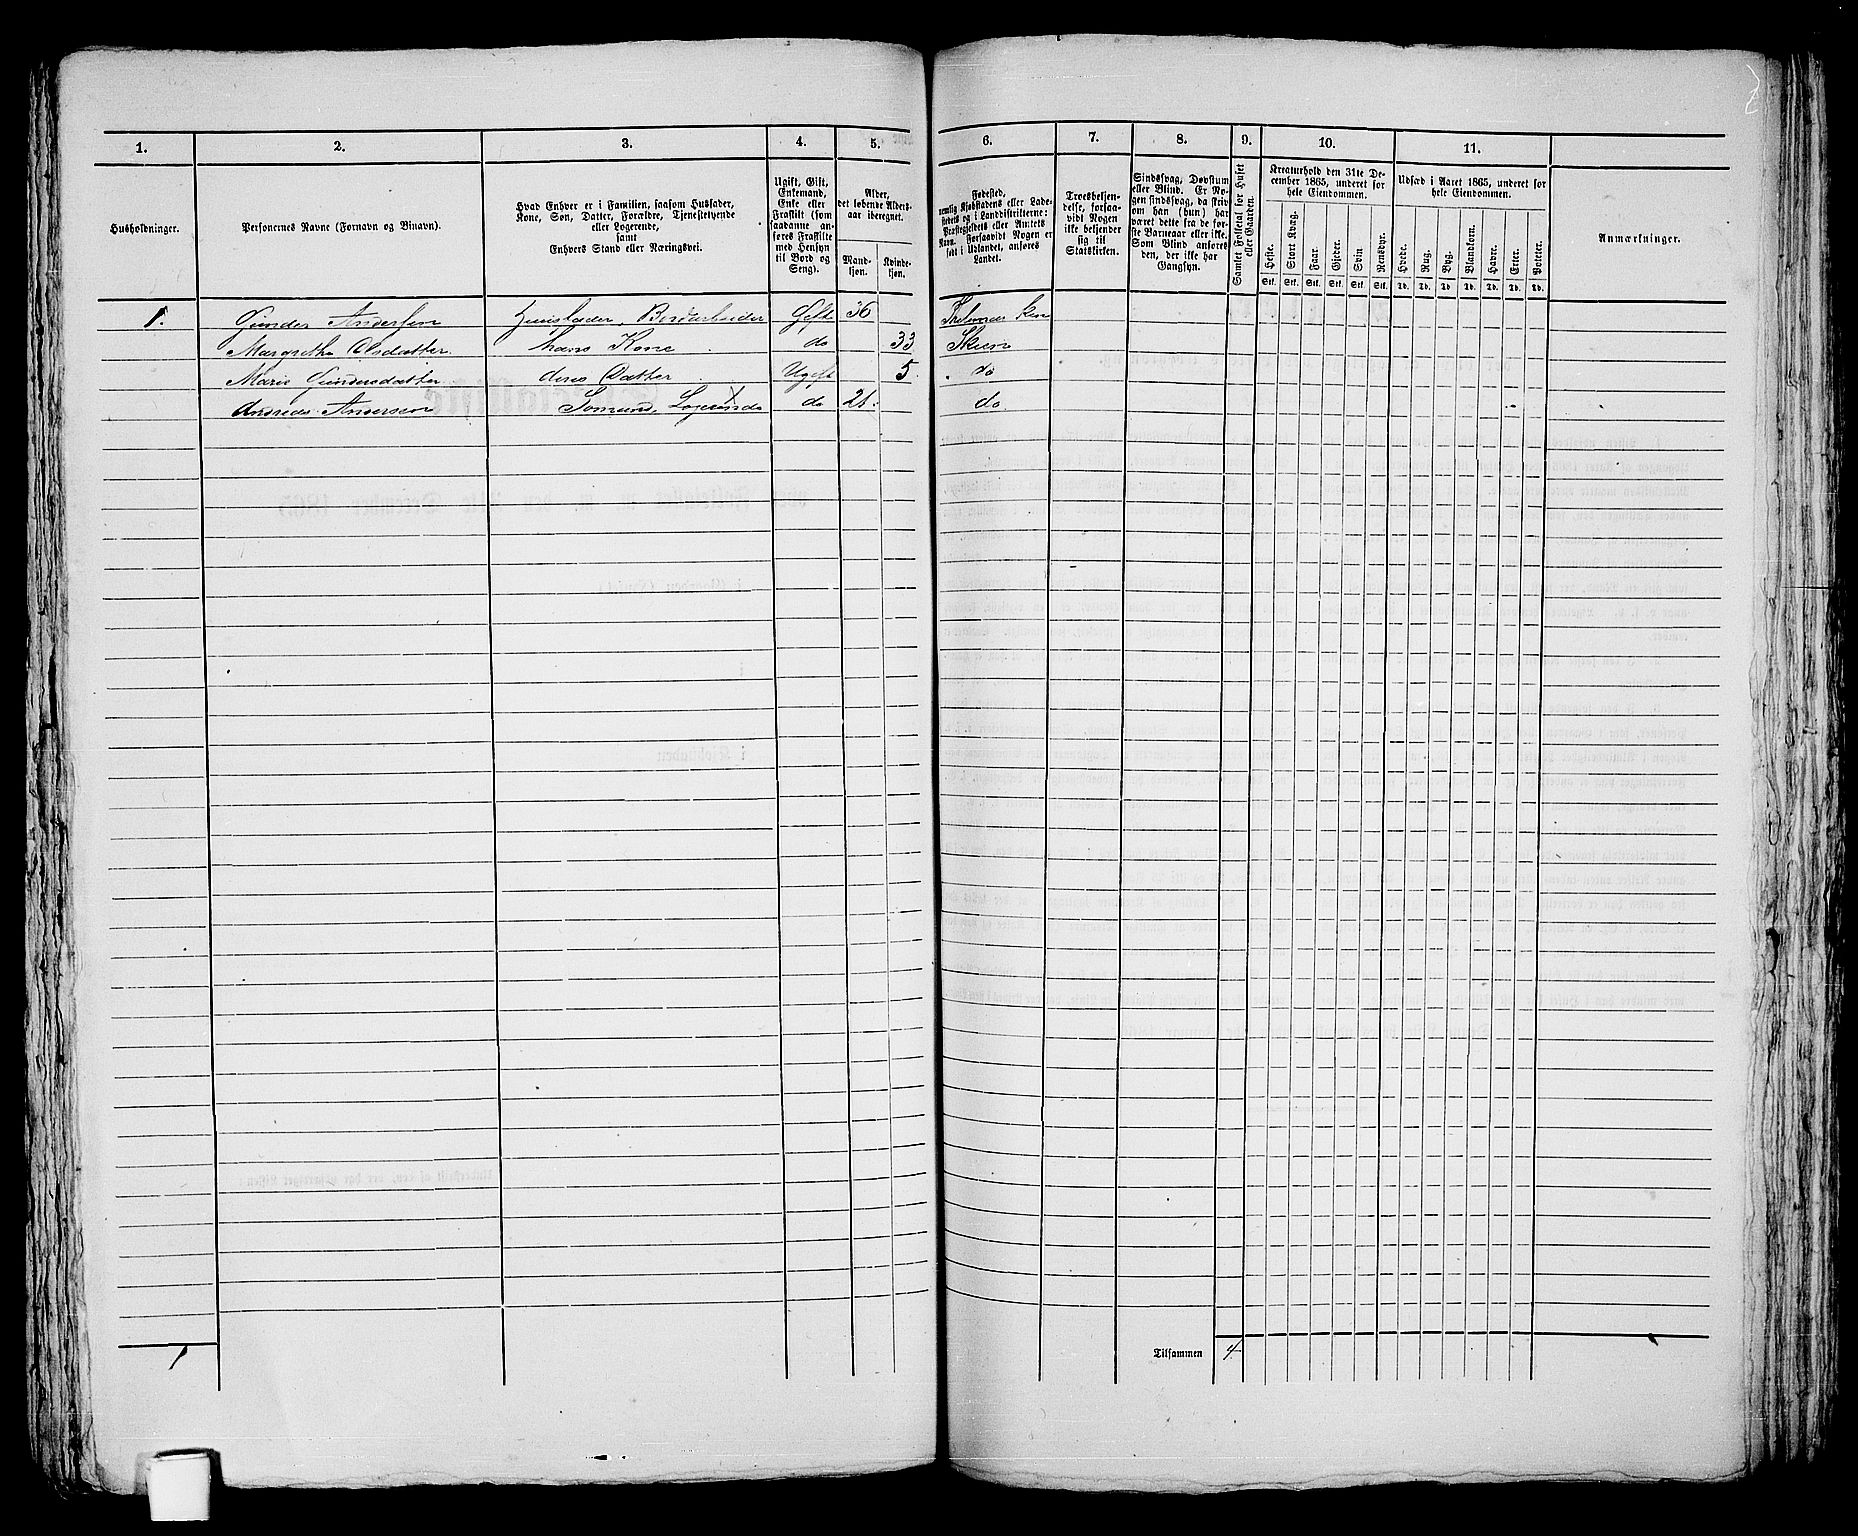 1. 2. 3. 4. 5. 6. 7. 8. 9. 10. 11.
Husholdninger.
Personernes Navne (Fornavn og Binavn).
Hvad Enhver er i Familien, saasom Husfader,
Kone, Søn, Datter, Forældre, Tjenestetyende
eller Logerende,
samt
Enhvers Stand eller Næringsvei.
Ugift, Gift,
Enkemand,
Enke eller
Fraskilt (som
saadanne an-
føres Fraskilte
med Hensyn
til Bord og
Seng).
Alder,
det løbende Alders-
aar iberegnet.
Mand-
kjøn.
Kvinde-
kjøn.
Fødested,
nemlig Kjøbstadens eller Lade-
stedets og i Landdistrikterne:
Præstegjeldets eller Amtets
Navn. Forsaavidt Nogen er
født i Udlandet, anføres
Landet.
Troesbekjen-
delse, forsaa-
vidt Nogen
ikke bekjender
sig til
Statskirken.
Sindssvag, Døvstum
eller Blind. Er No-
gen sindssvag, da skriv
om han (hun) har
været dette fra de før-
ste Barneaar eller ikke.
Som Blind anføres
den, der ikke har
Gangsyn.
Samlet Folketal for Huset
eller Gaarden.
Kreaturhold den 31te De-
cember 1865, underet for
hele Eiendommen.
Heste. Stort Kvæg. Faar. Gjeder. Svin Rensdyr.
Stk. Stk. Stk. Stk. Stk. Stk.
Udsæd i Aaret 1865, underet for
hele Eiendommen.
Hvede. Rug. Byg. Blandkorn. Havre. Erter. Poteter.
Td. Td. Td. Td. Td. Td. Td.
Anmærkninger.
1. Gunder Andersen Huusfader, Bordarbeider Gift 36
Margrethe Olsdatter. hans Kone do 33 Skien
Marie Gundersdatter deres Datter Ugift 5 do
Andreas Andersen Sømand, Logerende do 21. do
1 Tilsammen 4